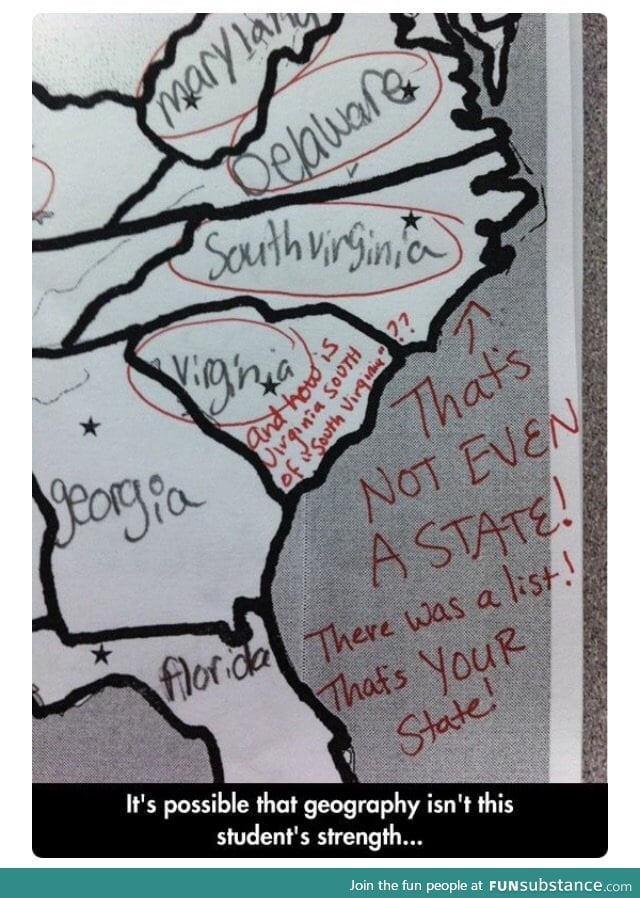 maryland
Delaware
South virginia
virginia
And how is
Virginia SOUTH
of "South Virginia"??
That's
NOT EVEN
A STATE!
There was a list!
That's YOUR
State!
georgia
florida
It's possible that geography isn't this
student's strength...
Join the fun people at FUNSubstance.com